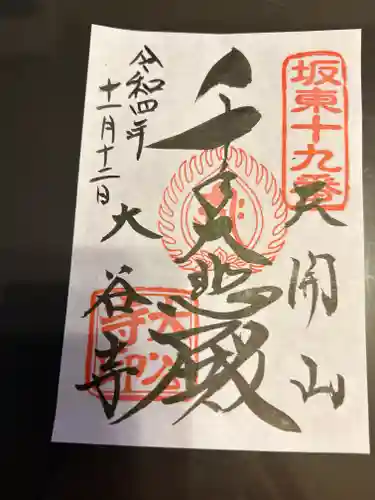 坂東十九番
天開山
千手大悲殿
令和四年
十一月十二日
大谷寺
大谷寺印